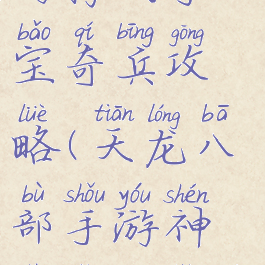 bǎo qí bīng gōng
宝奇兵攻
lüè tiān lóng bā
略(天龙八
bù shǒu yóu shén
部手游神